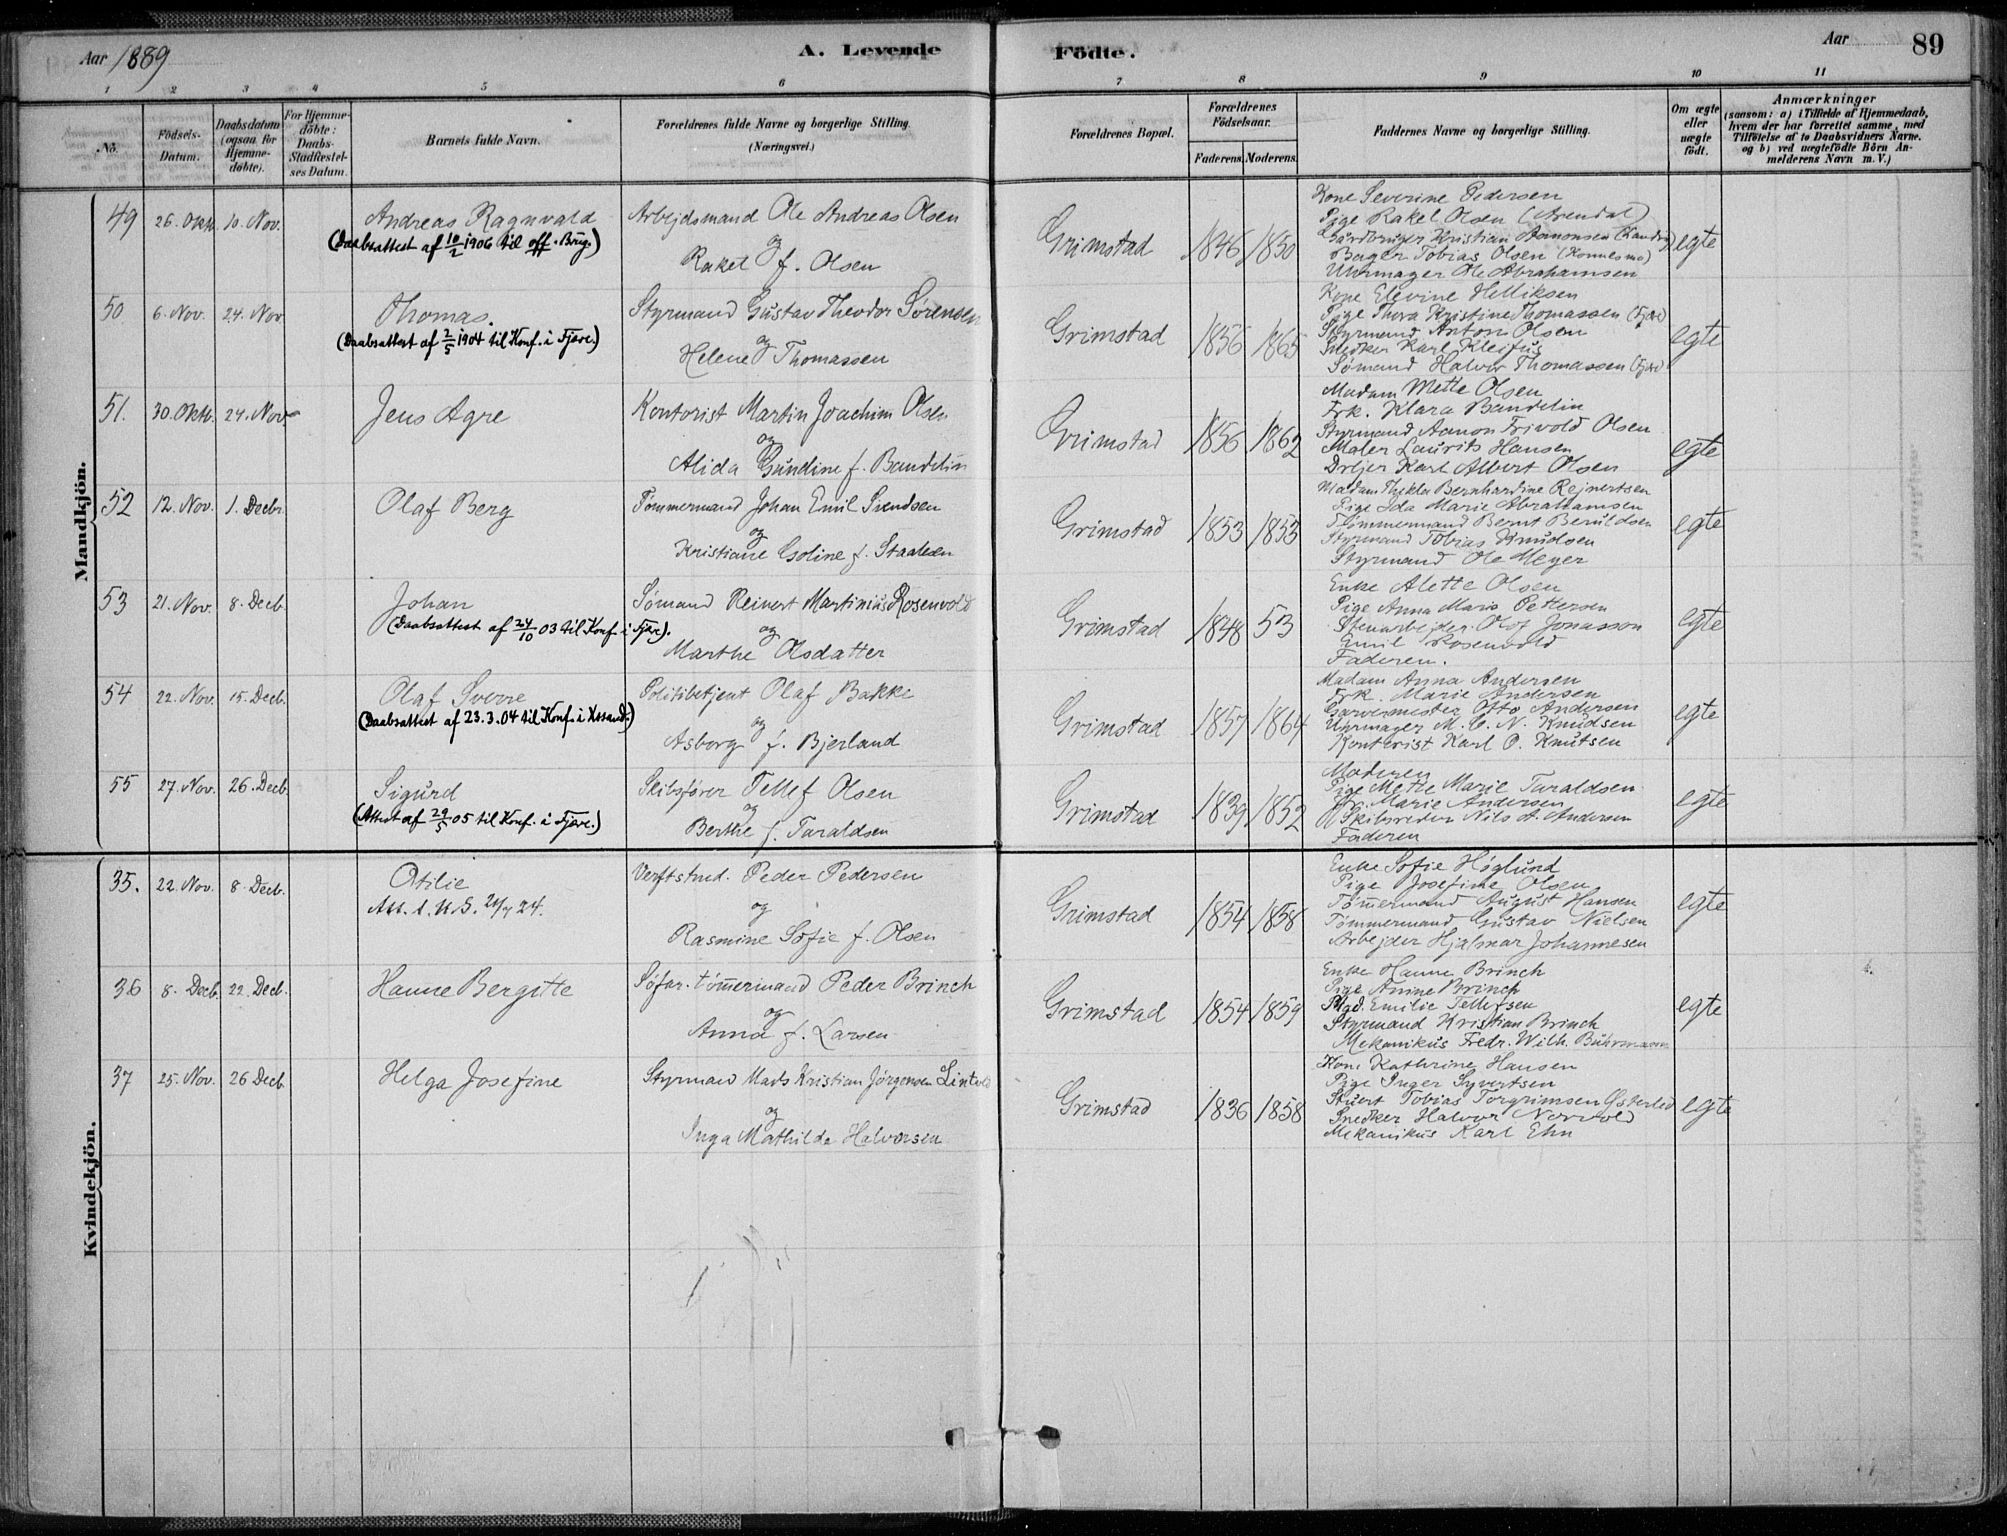 Aar 1889
A. Levende
Födte.
Aar
89
1 2 3 4 5 6 7 8 9 10 11
No.
Födsels-Datum.
Daabsdatum (ogsaa for Hjemme-döbte).
For Hjemme-döbte: Daabs-Stadfæstel-ses Datum.
Barnets fulde Navn.
Forældrenes fulde Navne og borgerlige Stilling. (Næringsvei.)
Forældrenes Bopæl.
Forældrenes Födselsaar.
Faderens. Moderens.
Faddernes Navne og borgerlige Stilling.
Om ægte eller uægte födt.
Anmærkninger
(saasom: a) i Tilfælde af Hjemmedaab, hvem der har forrettet samme, med Tilföielse af to Daabsvidners Navne. og b) ved uægtefödte Börn An-melderens Navn m. V.)
Mandkjön.
49 26. Oktb. 10. Nov. Andreas Ragnvald
(Daabsattest af 10/2 1906 til off. Brug.)
Arbejdsmand Ole Andreas Olsen
og
Rakel f. Olsen
Grimstad 1846 1850
Kone Severine Pedersen
Pige Rakel Olsen (Arendal)
Gårdbruger Kristian Aanonsen
Bager Tobias Olsen
Uhrmager Ole Abrahamsen
egte
50 6. Nov. 24. Nov. Thomas.
(Daabsattest af 2/5 1904 til Konf. i Fjære.)
Styrmand Gustav Theodor Sørensen
og
Helene Thomassen
Grimstad 1856 1865
Kone Elevine Helliksen
Pige Thora Kristine Thomassen (Fjære)
Styrmand Anton Olsen
Snedker Karl Kleifus
Sømand Halvor Thomassen (Fjære)
egte
51. 30. Oktb. 24. Nov. Jens Agre
Kontorist Martin Joachim Olsen
og
Alida Gundine f. Bandelin
Grimstad 1856 1862
Madam Mette Olsen
Frk. Klara Bandelin
Styrmand Aanon Frivold Olsen
Maler Laurits Hansen
Drejer Karl Albert Olsen
egte
52 12. Nov. 1. Decbr. Olaf Berg
Tømmermand Johan Emil Svendsen
og
Kristiane Goline f. Staalesen
Grimstad 1853 1853
Madam Thekla Bernhardine Rejnertsen
Pige Ida Marie Abrahamsen
Tømmermand Bernt Beruldsen
Styrmand Tobias Knudsen
Styrmand Ole Meyer
egte
53 21. Nov. 8. Decb. Johan
(Daabsattest af 24/10 03 til Konf. i Fjære).
Sømand Reinert Martinius Rosenvold
og
Marthe Olsdatter
Grimstad 1848 53
Enke Alette Olsen
Pige Anna Maria Pettersen
Stenarbejder Olof Jonasson
Emil Rosenvold
Faderen.
egte
54 22. Nov. 15. Decb. Olaf Sverre
(Daabsattest af 23.3.04 til Konf. i Krsand.)
Politibetjent Olaf Bakke
og
Asborg f. Bjerland
Grimstad 1857 1864
Madam Anna Andersen
Frk. Marie Andersen
Garvermester Otto Andersen
Uhrmager M. C. N. Knudsen
Kontorist Karl O. Knutsen
egte
55 27. Nov. 26. Decb. Sigurd
(Attest af 29/5 05 til Konf. i Fjære.)
Skibsfører Tellef Olsen
og
Berthe f. Taraldsen
Grimstad 1839 1852
Moderen
Pige Mette Marie Taraldsen
Frk. Marie Andersen
Skibsreder Nils A. Andersen
Faderen
egte
Kvindekjön.
35. 22. Nov. 8. Decb. Otilie
Verftstmd. Peder Pedersen
og
Rasmine Sofie f. Olsen
Grimstad 1854 1858
Enke Sofie Høglund
Pige Josefine Olsen
Tømmermand August Hansen
Tømmermand Gustav Nielsen
Arbejder Hjalmar Johannesen
egte
36 8. Decb. 22. Decb. Hanne Bergitte
Søfar. tømmermand Peder Brinch
og
Anna f. Larsen
Grimstad 1854 1859
Enke Hanne Brinch
Pige Anine Brinch
Mad. Emilie Tellefsen
Styrmand Kristian Brinch
Mekanikus Fredr. Wilh. Bührmann
egte
37 25. Nov. 26 Decb. Helga Josefine
Styrmand Mads Kristian Jørgensen
og
Inga Mathilde Halvorsen
Grimstad 1836 1858
Kone Kathrine Hansen
Pige Inger Syvertsen
Stuert Tobias Torgrimsen Østerlid
Snedker Halvor Norvold
Mekanikus Karl Ehn
egte